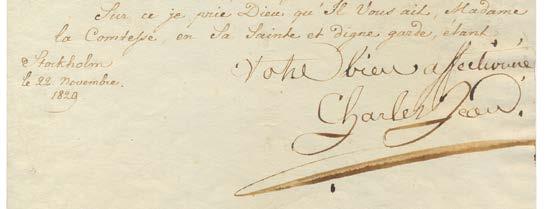 Sur ce je prie Dieu qu'Il Vous ait, Madame
la Comtesse, en Sa Sainte et digne garde, étant
Stockholm
le 22. Novembre.
1829
Votre bien affectionné
Charles Jean.